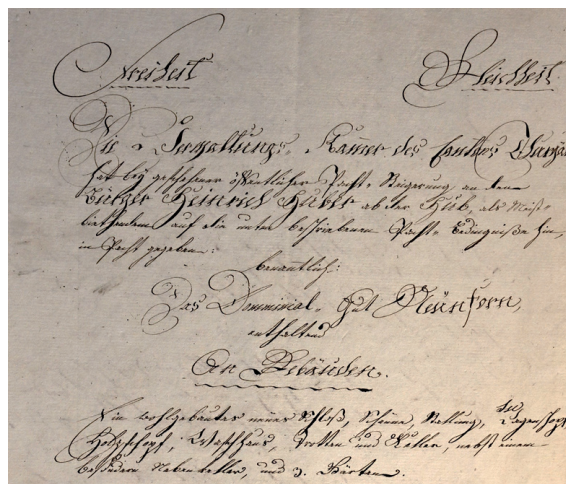 Freiheit Gleichheit
Die Verwaltungs-Kammer des Cantons Thurgäu
hat bey geschehener öffentlicher Pacht-Steigerung, an dem
Bürger Heinrich Huber ab der Hub, als Meist-
biethendem auf die unten beschriebenen Pacht-Bedingnisse hin,
in Pacht gegeben:
benantlich:
Das Dominical-Gut Neünforn,
enthaltend
An Gebäuden.
Ein wohlgebautes neües Schloß, Scheüne, Stallung,
Holzschopf, Waschhaus, Trotten und Keller, nebst einem
besondern Nebenkeller, und 3. Gärten.